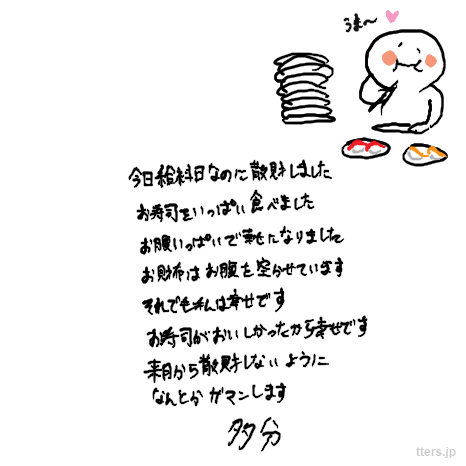 うま〜
今日給料日なのに散財しました
お寿司をいっぱい食べました
お腹いっぱいで幸せになりました
お財布はお腹を空かせています
それでも私は幸せです
お寿司がおいしかったから幸せです
来月から散財しないように
なんとかガマンします
多分
tters.jp